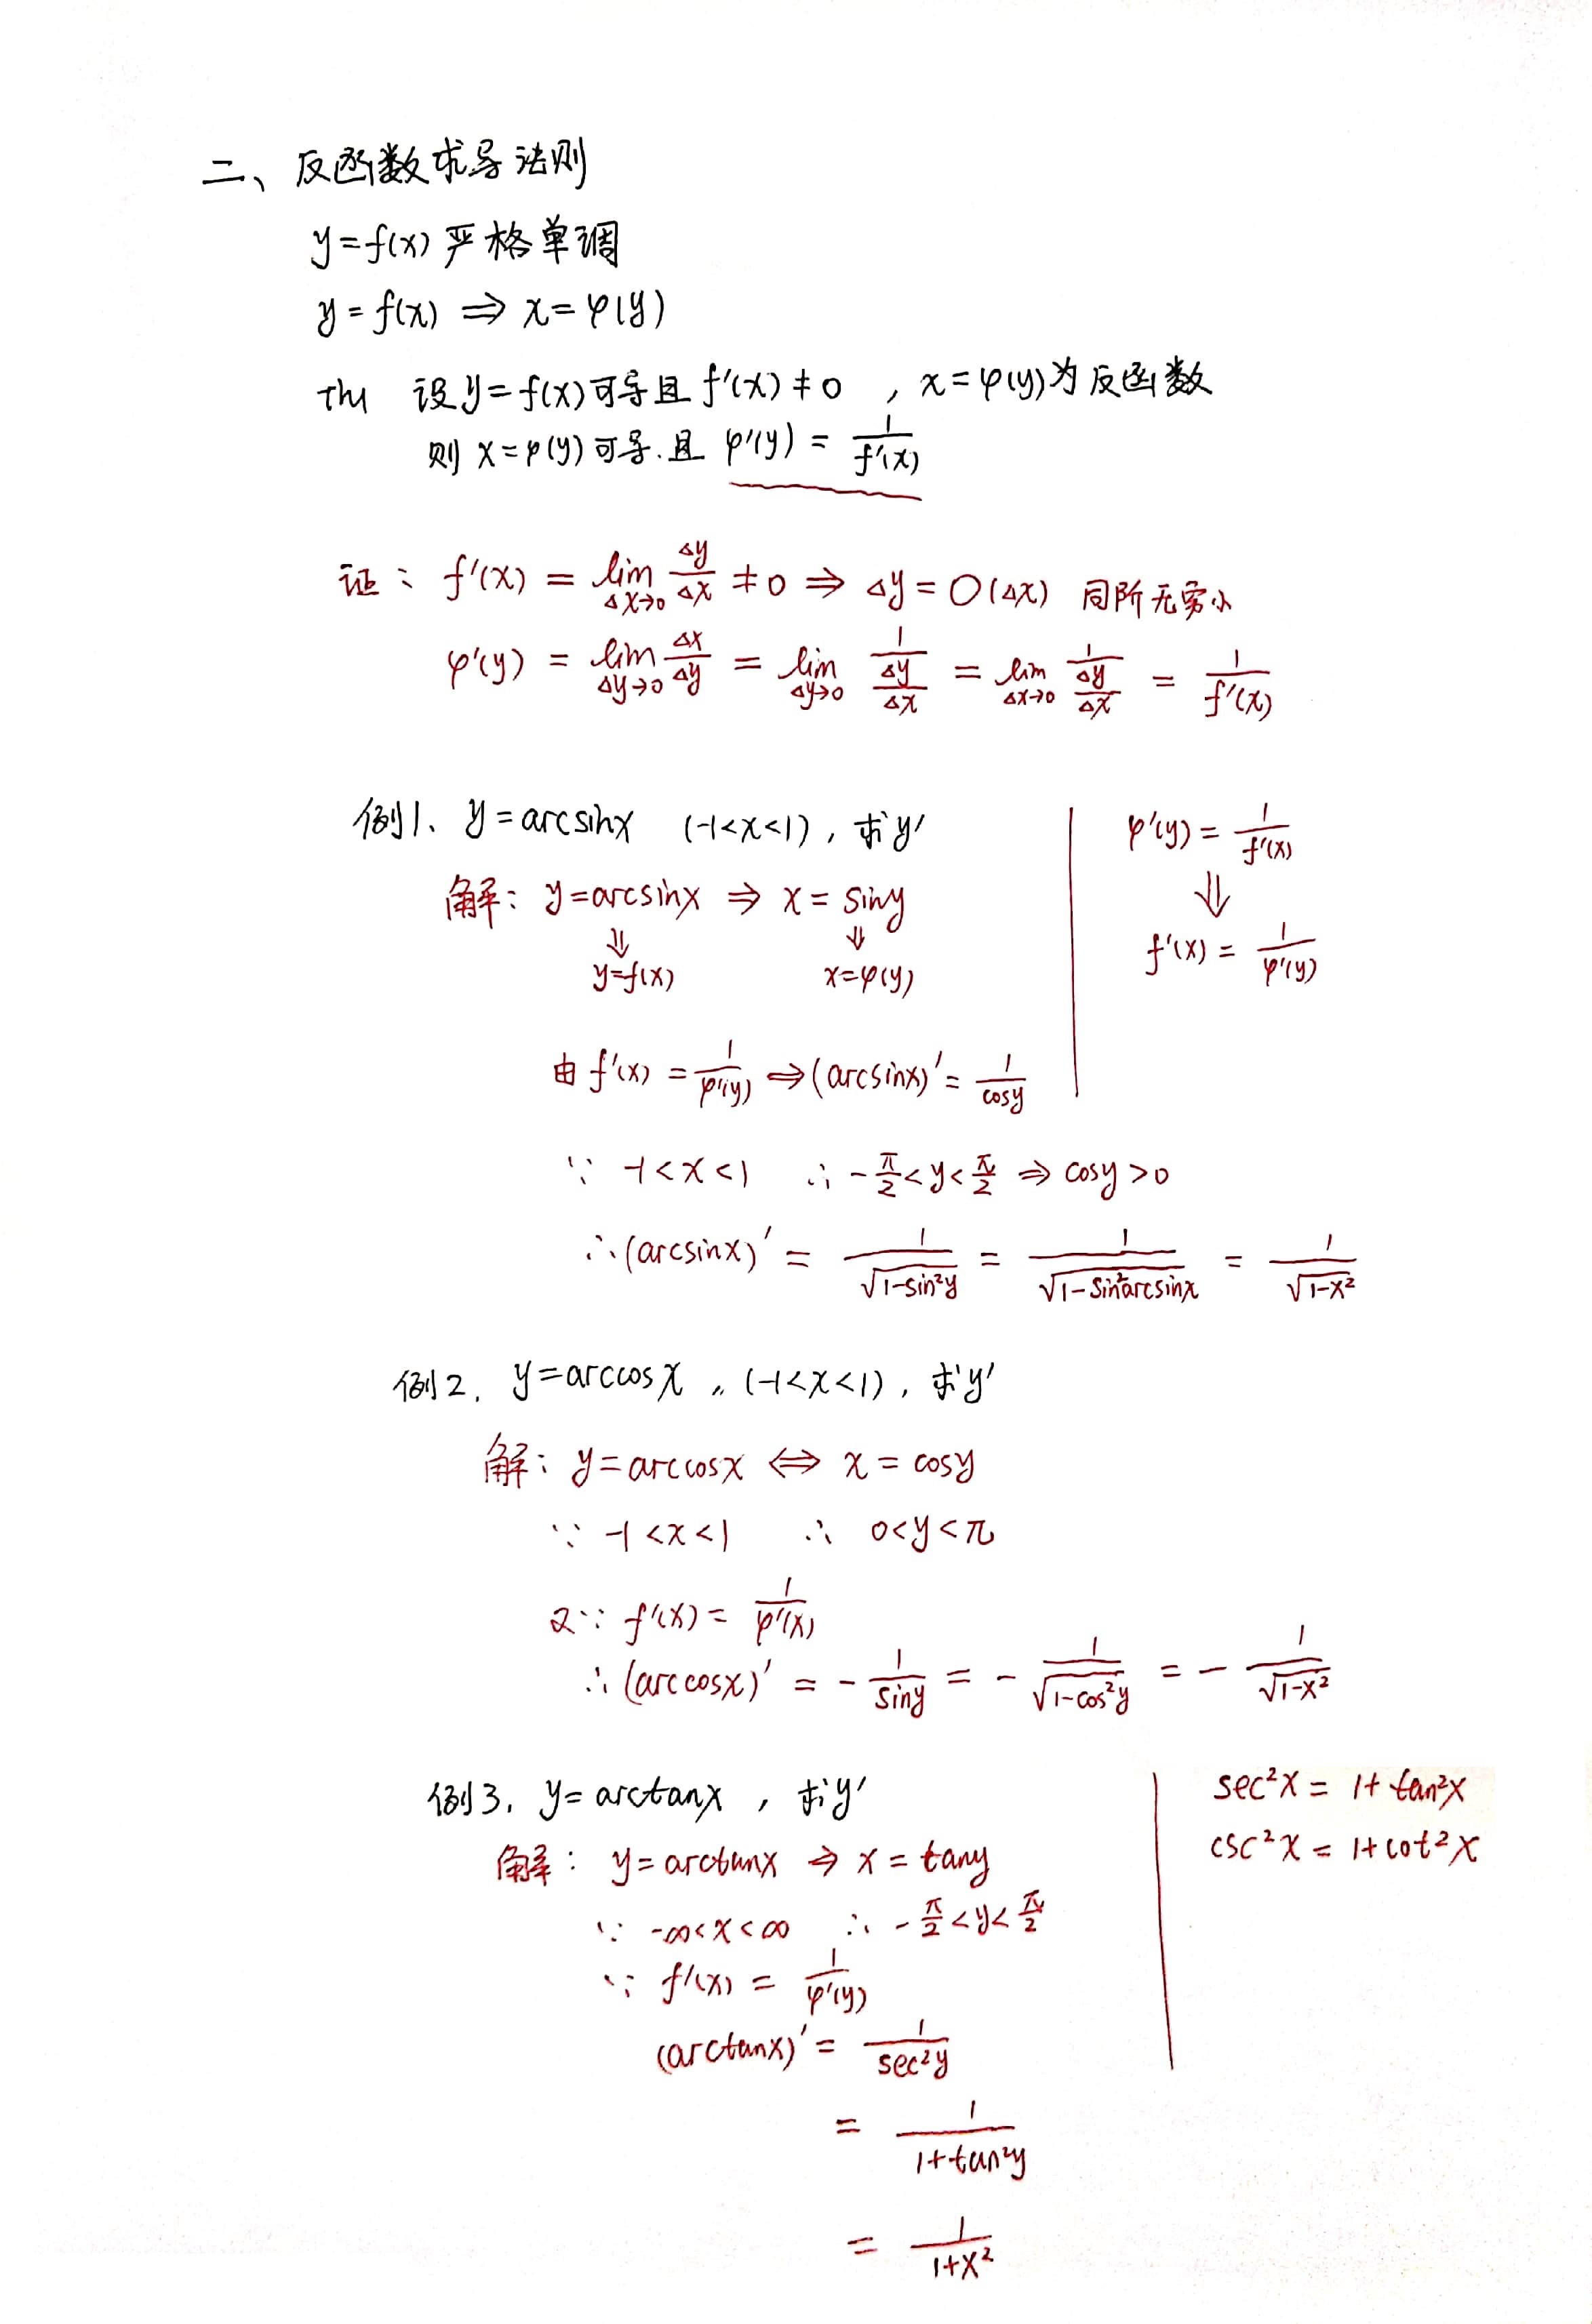 二、反函数求导法则
y=f(x) 严格单调
y=f(x) ⇒ x=φ(y)
Th1 设y=f(x)可导且f'(x)≠0 , x=φ(y)为反函数
则 x=φ(y)可导.且 φ'(y) = 1/f'(x)
证: f'(x) = lim_{Δx→0} Δy/Δx ≠0 ⇒ Δy=O(Δx) 同阶无穷小
φ'(y) = lim_{Δy→0} Δx/Δy = lim_{Δy→0} 1/(Δy/Δx) = lim_{Δx→0} 1/(Δy/Δx) = 1/f'(x)
例1、y=arcsinx (-1<x<1), 求y'
解: y=arcsinx ⇒ x=siny
⇓ ⇓
y=f(x) x=φ(y)
由 f'(x) = 1/φ'(y) ⇒ (arcsinx)' = 1/cosy
∵ -1<x<1 ∴ -π/2<y<π/2 ⇒ cosy>0
∴ (arcsinx)' = 1/√(1-sin²y) = 1/√(1-sin²arcsinx) = 1/√(1-x²)
φ'(y) = 1/f'(x)
⇓
f'(x) = 1/φ'(y)
例2. y=arccosx ,, (-1<x<1), 求y'
解: y=arccosx ⇔ x=cosy
∵ -1<x<1 ∴ 0<y<π
又∵ f'(x) = 1/φ'(x)
∴ (arccosx)' = - 1/siny = - 1/√(1-cos²y) = - 1/√(1-x²)
例3. y=arctanx , 求y'
解: y=arctanx ⇒ x=tany
∵ -∞<x<∞ ∴ -π/2<y<π/2
∵ f'(x) = 1/φ'(y)
(arctanx)' = 1/sec²y
= 1/(1+tan²y)
= 1/(1+x²)
sec²x = 1+tan²x
csc²x = 1+cot²x